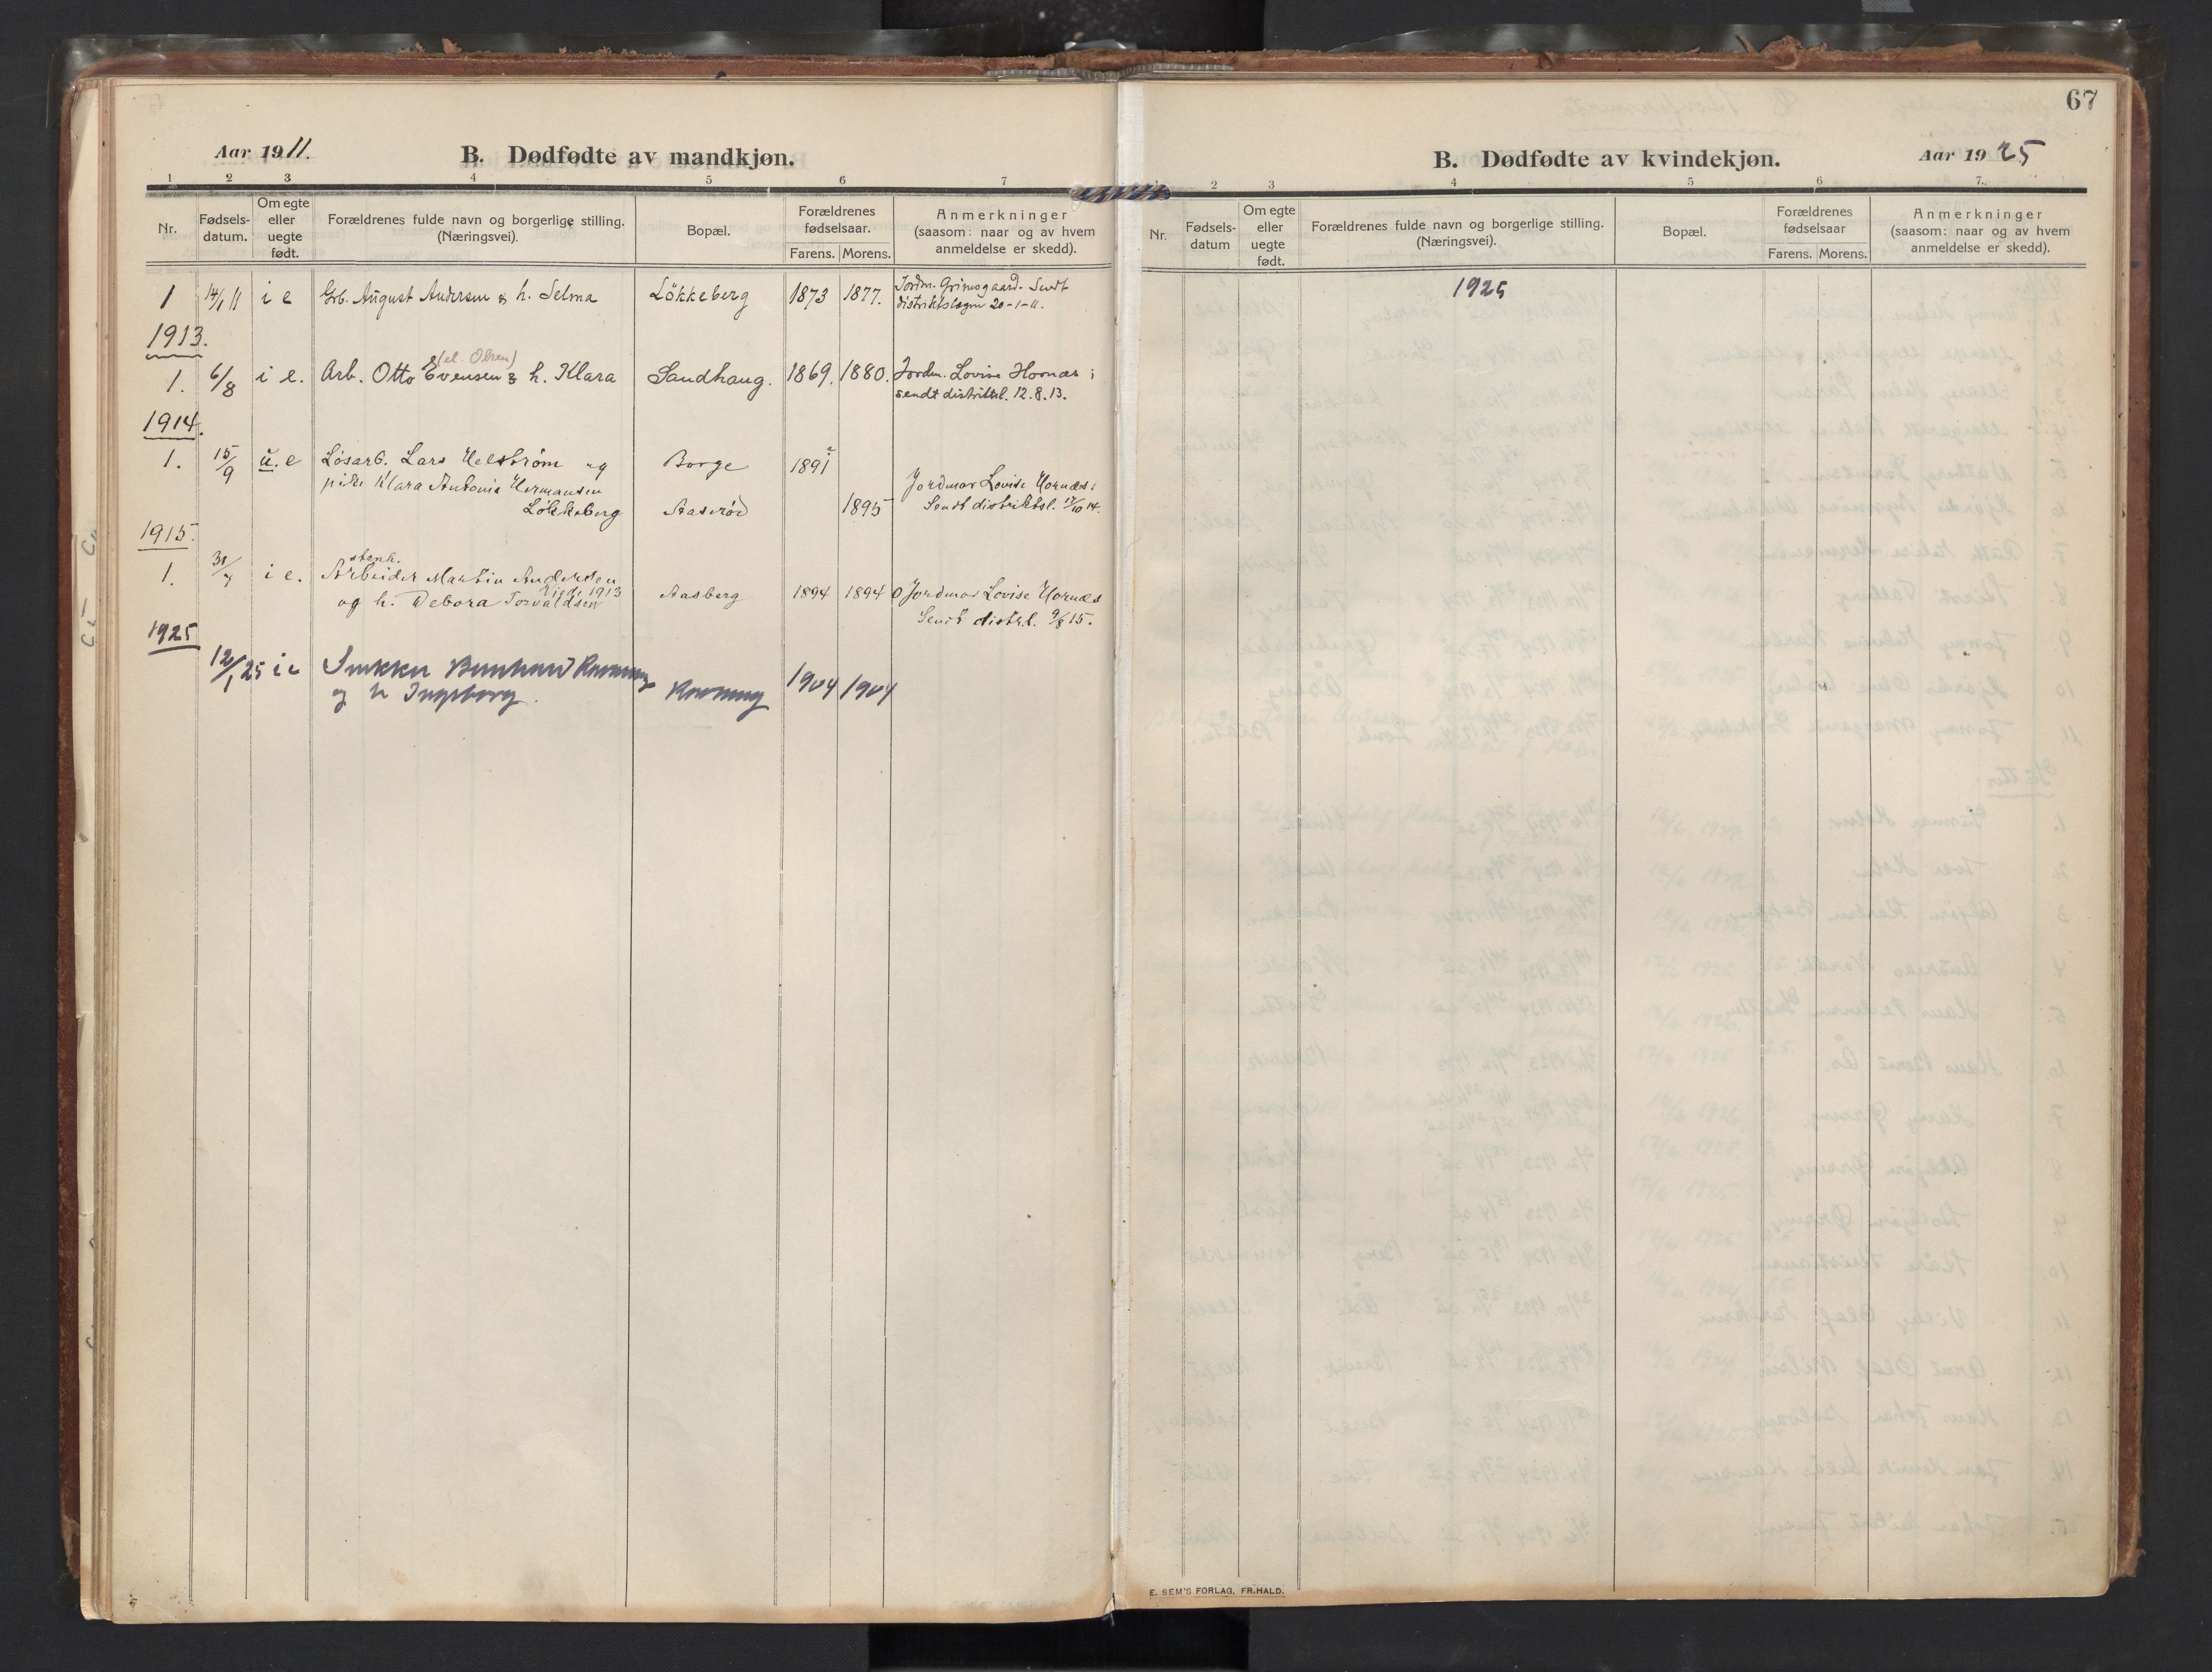 67
Aar 1911.
B. Dødfødte av mandkjøn.
1 2 3 4 5 6 7
Nr.
Fødsels-
datum.
Om egte
eller
uegte
født.
Forældrenes fulde navn og borgerlige stilling.
(Næringsvei).
Bopæl.
Forældrenes
fødselsaar.
Farens. Morens.
Anmerkninger
(saasom: naar og av hvem
anmeldelse er skedd).
1 14/1 11 i e Grb. August Andersen & h. Selma Løkkeberg 1873 1877. Jordm. Grimsgaard. Sendt
distriktslægen 20-1-11.
1913.
(el. Olsen)
1. 6/8 i e. Arb. Otto Evensen & h. Klara Sandhaug. 1869. 1880. Jordm. Lovise Hornæs;
sendt distriktsl. 12.8.13.
1914.
1. 15/9 u. e Løsarb. Lars Helstrøm og Borge 1891
pike Klara Antonie Hermansen Jordmor Lovise Hornæs;
Løkkeberg Aaserød 1895 Sendt distriktsl. 17/10 14.
1915.
stenh.
1. i e. Arbeider Martin Andersen
Viede 1913
og h. Debora Torvaldsen Aasberg 1894 1894 Jordmor Lovise Hornæs
Sendt distr.l. 9/8 15.
1925
12/1 25 i e Snekker Bernhard
og h Ingeborg. 1904 1904
B. Dødfødte av kvindekjøn.
Aar 1925
1 2 3 4 5 6 7.
Nr.
Fødsels-
datum
Om egte
eller
uegte
født.
Forældrenes fulde navn og borgerlige stilling.
(Næringsvei).
Bopæl.
Forældrenes
fødselsaar
Farens. Morens.
Anmerkninger
(saasom: naar og av hvem
anmeldelse er skedd).
1925
E. SEM'S FORLAG, FR.HALD.